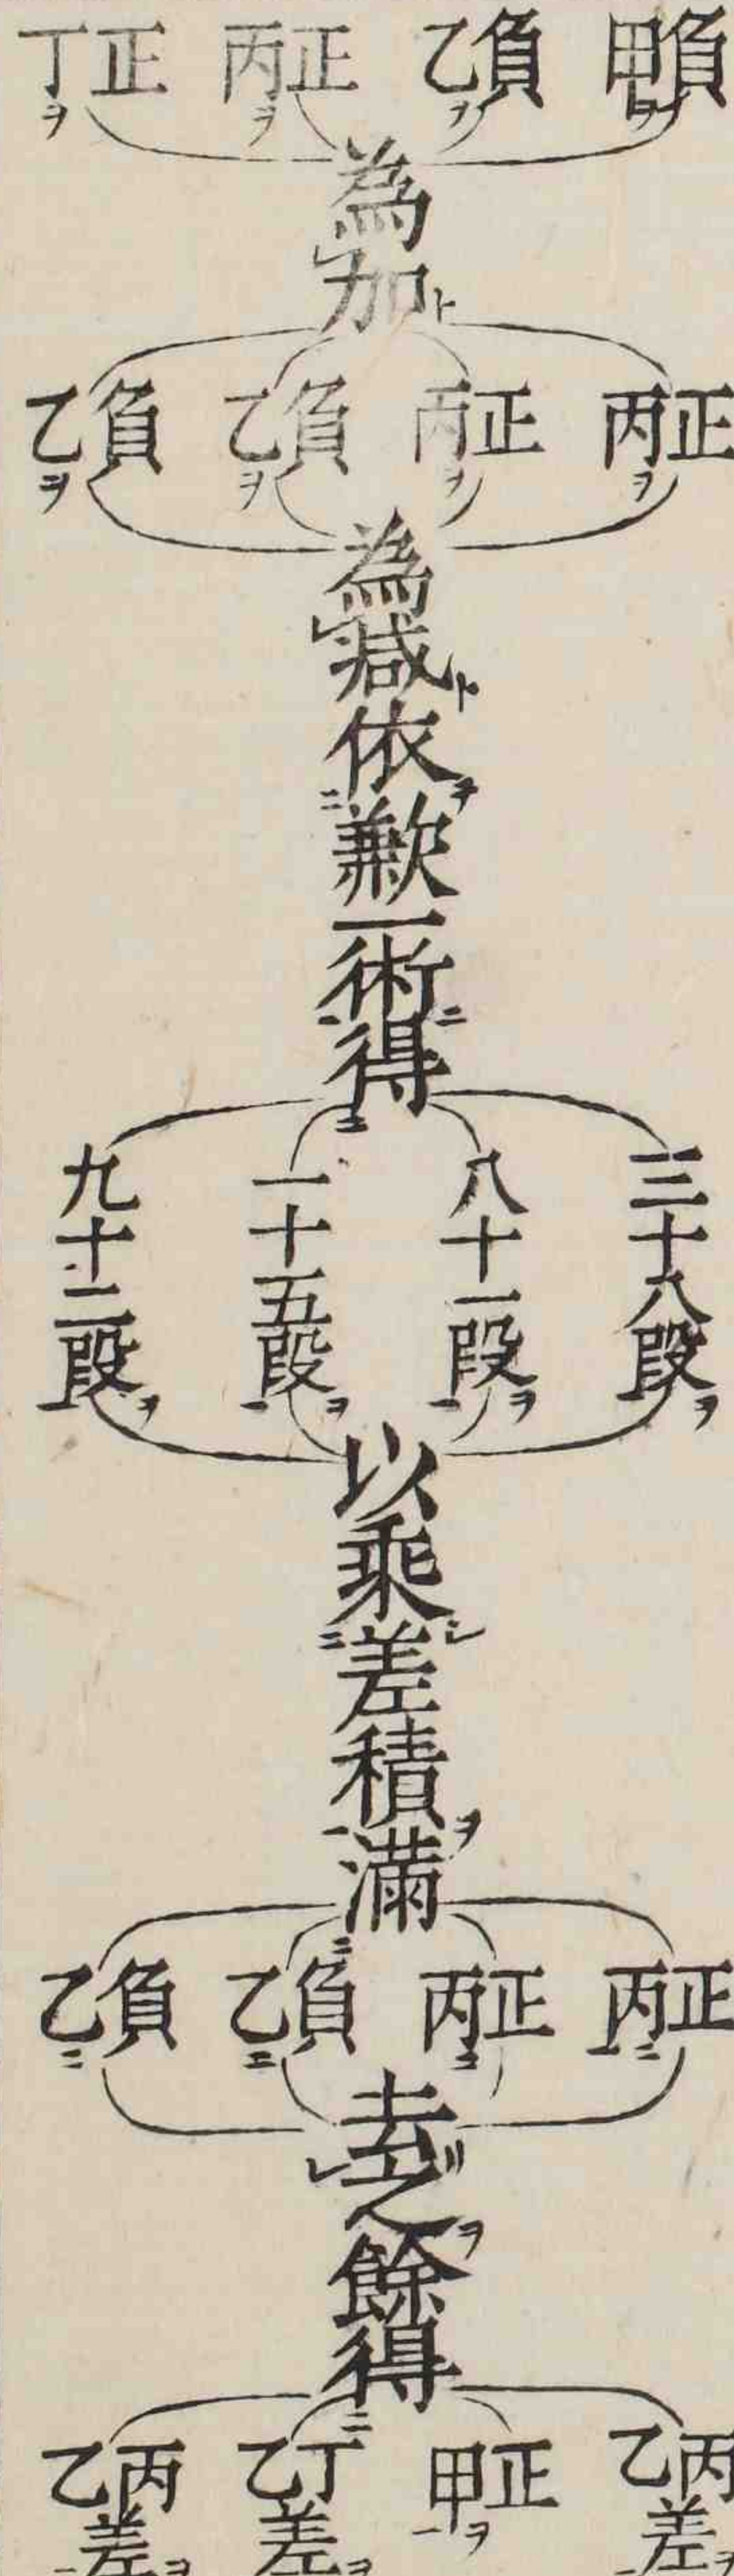 甲負ヲ 乙負ヲ 丙正ヲ 丁正ヲ
為レ加ト
丙正ヲ 丙正ヲ 乙負ヲ 乙負ヲ
為レ減ト依テ二歉一術ニ一得二
三十八段ヲ一 八十一段ヲ一 一十五段ヲ一 九十二段ヲ一
以乘シ二差積ヲ一滿二
丙正ニ一 丙正ニ一 乙負ニ一 乙負ニ一
去レ之ヲ餘得二
乙丙差ヲ一 甲正ヲ一 乙丁差ヲ一 乙丙差ヲ一